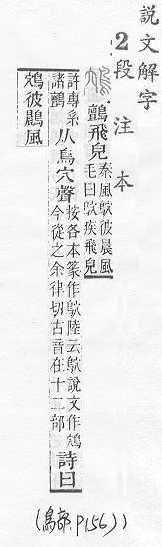 説文解字
2段注本
鴪
鸇飛皃
秦風鴥彼晨風
毛曰鴥疾飛皃
許專系
諸鸇
从鳥穴聲
按各本篆作鴥陸云鴥說文作鴪
今從之余律切古音在十二部
詩曰
鴪彼鷐風
(鳥部.P156))